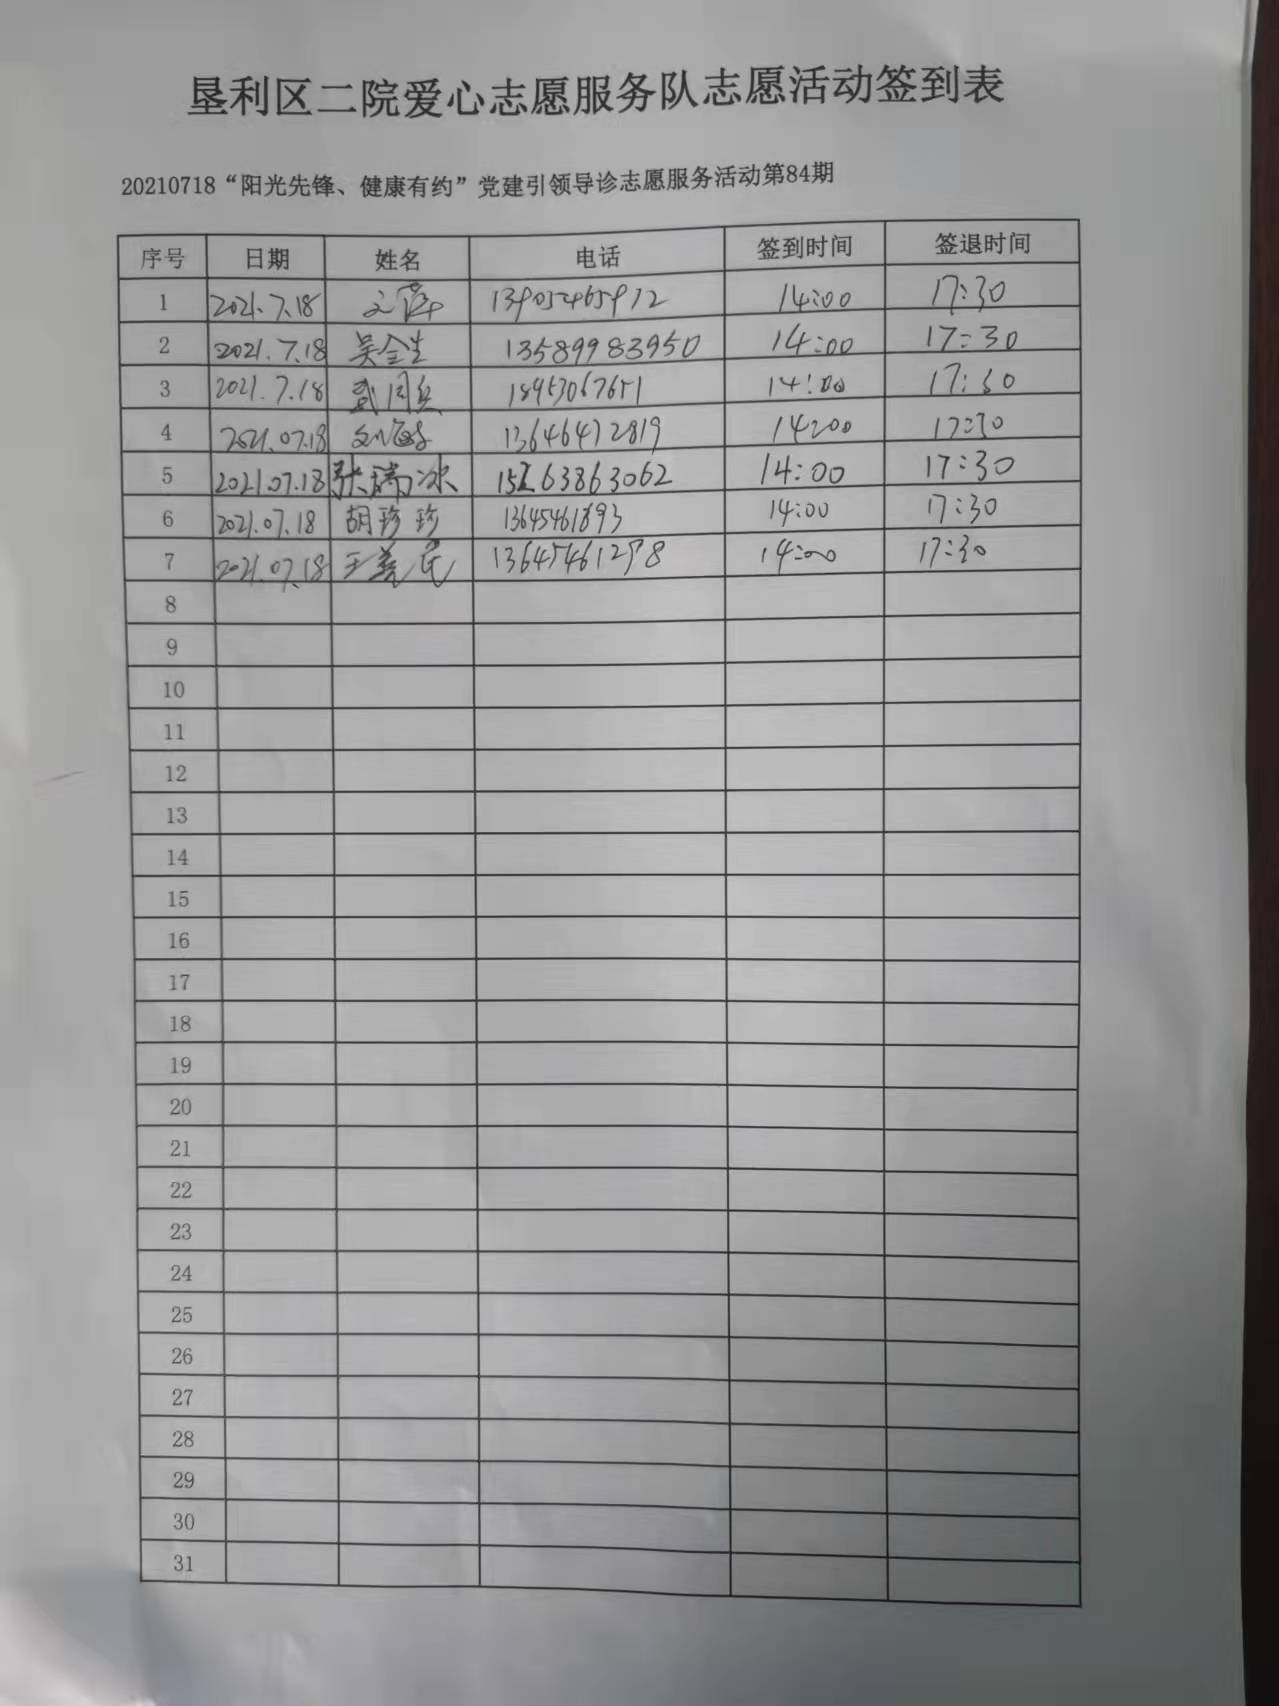 垦利区二院爱心志愿服务队志愿活动签到表
20210718“阳光先锋、健康有约”党建引领导诊志愿服务活动第84期
序号 日期 姓名 电话 签到时间 签退时间
1 2021.7.18 13905465912 14:00 17:30
2 2021.7.18 吴全生 13589983950 14:00 17:30
3 2021.7.18 18953067651 14:00 17:30
4 2021.07.18 13646472819 14:00 17:30
5 2021.07.18 张瑞冰 15263863062 14:00 17:30
6 2021.07.18 胡珍珍 13645461893 14:00 17:30
7 2021.07.18 13645461298 14:00 17:30
8
9
10
11
12
13
14
15
16
17
18
19
20
21
22
23
24
25
26
27
28
29
30
31